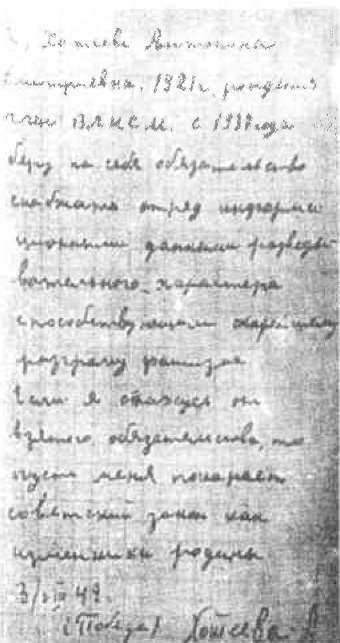 Я, Хотеева Антонина
Дмитриевна, 1921 г. рождения
член ВЛКСМ. с 1938 года
беру на себя обязательство
снабжать отряд информа
ционными данными разведы
вательного характера
способствующими скорейшему
разгрому фашизма
Если я откажусь от
взятого обязательства, то
пусть меня покарает
советский закон как
изменника родины
3/ 42.
(Победа) Хотеева А